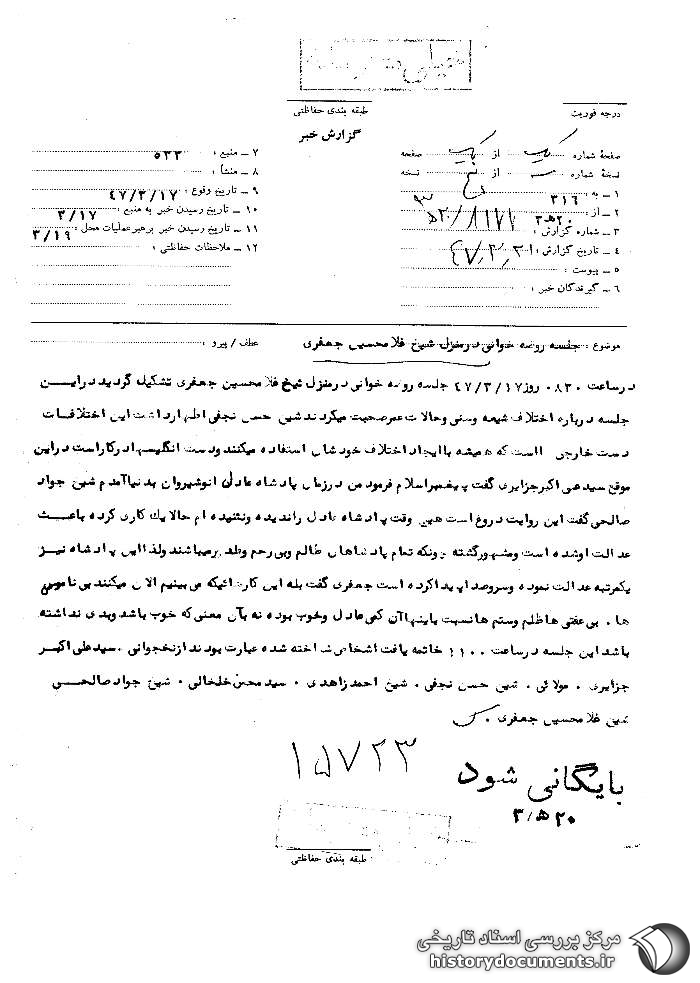 خیلی محرمانه
درجه فوریت
طبقه بندی حفاظتی
گزارش خبر
صفحهٔ شماره یک از یک صفحه
نسخهٔ شماره از نسخه
۱ ـ به : ۳۱۶
۲ ـ از : ۲۰ ه‍ ۳
۳ ـ شماره گزارش :
۴ ـ تاریخ گزارش :
۵ ـ پیوست :
۶ ـ گیرندگان خبر :
۷ ـ منبع : ۵۳۳
۸ ـ منشأ :
۹ ـ تاریخ وقوع : ۴۷/۳/۱۷
۱۰ ـ تاریخ رسیدن خبر به منبع : ۳/۱۷
۱۱ ـ تاریخ رسیدن خبر برهبرعملیات محل : ۳/۱۹
۱۲ ـ ملاحظات حفاظتی :
موضوع : جلسه روضه خوانی درمنزل شیخ غلامحسین جعفری
عطف / پیرو :
درساعت ۰۸۳۰ روز ۴۷/۳/۱۷ جلسه روضه خوانی درمنزل شیخ غلامحسین جعفری تشکیل گردید دراین
جلسه درباره اختلاف شیعه وسنی وحالات عمر صحبت میکردند شیخ حسن نجفی اظهارداشت این اختلافات
دست خارجی ااست که همیشه با ایجاد اختلاف خودشان استفاده میکنند ودست انگلیسها درکاراست دراین
موقع سید علی اکبرجزایری گفت پیغمبراسلام فرمود من درزمان پادشاه عادل انوشیروان بدنیا آمدم شیخ جواد
صالحی گفت این روایت دروغ است هیچ وقت پادشاه عادل راندیده ونشنیده ام حالا یك کاری کرده باعث
عدالت اوشده است ومشهورگشته چونکه تمام پادشاهان ظالم وبی رحم میباشند ولذا این پادشاه نیز
یکمرتبه عدالت نموده وسروصدا پیدا کرده است جعفری گفت بله این کارهائیکه می بینیم الان میکنند بی ناموسی
ها ۰ بی عفتی ها ظلم وستم ها نسبت باینها آن کمی عادل وخوب بوده نه بآن معنی که خوب باشد وبدی نداشته
باشد این جلسه درساعت ۱۱۰۰ خاتمه یافت اشخاص شناخته شده عبارت بودند ازنخجوانی ۰ سید علی اکبر
جزایری ۰ مولائی ۰ شیخ حسن نجفی ۰ شیخ احمد زاهدی ۰ سید محسن خلخالی ۰ شیخ جواد صالحی
شیخ غلامحسین جعفری ۰
۱۵۷۲۳
بایگانی شود
۲۰ ه‍ ۳
طبقه بندی حفاظتی
مرکز بررسی اسناد تاریخی
historydocuments.ir